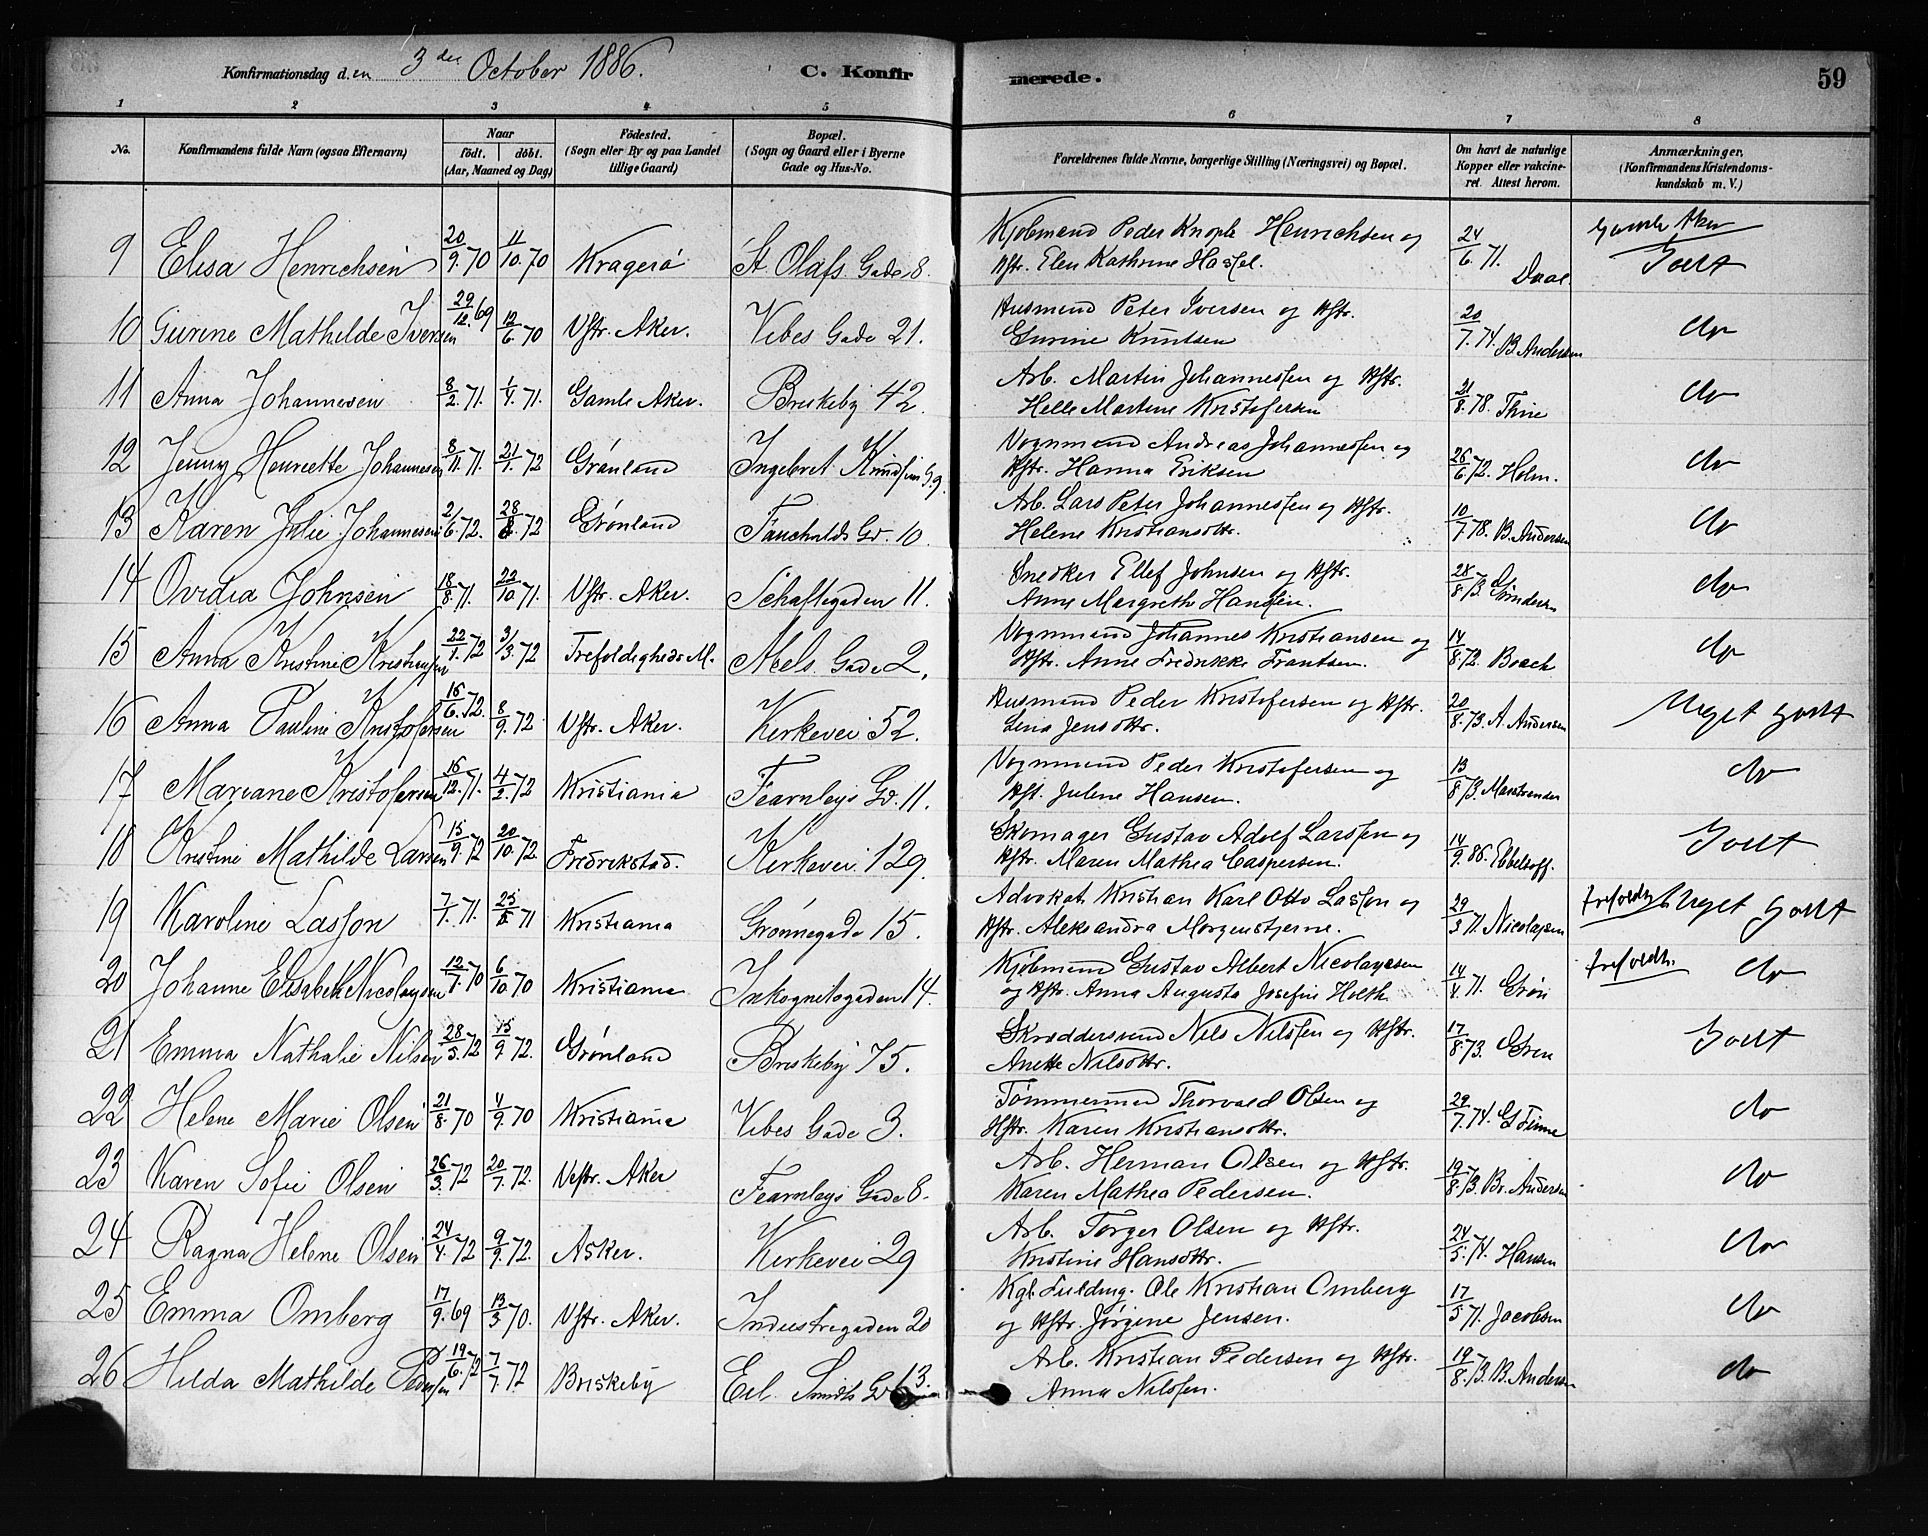 Konfirmationsdag den 3die October 1886. C. Konfirmerede. 59
1 2 3 4 5 6 7 8
No. Konfirmandens fulde Navn (ogsaa Efternavn) Naar födt. döbt. (Aar, Maaned og Dag) Födested. (Sogn eller By og paa Landet tillige Gaard) Bopæl. (Sogn og Gaard eller i Byerne Gade og Hus-No. Forældrenes fulde Navne, borgerlige Stilling (Næringsvei) og Bopæl. Om havt de naturlige Kopper eller vakcineret. Attest herom. Anmærkninger, (Konfirmandens Kristendomskundskab m. V.)
9 Elisa Henrichsen 20/9.70 11/10.70 Kragerö St. Olafs Gade 8. Kjøbmand Peder Knoph Henrichsen og Hstr. Elen Kathrine Hassel. 24/6.71. Daae. Gamle Aker Godt
10 Gurine Mathilde Iversen 29/12.69 12/6.70 Vstr. Aker. Vibes Gade 21. Husmand Peter Iversen og Hstr. Gurine Knutsen 20/7.74. B Andersen do
11 Anna Johannesen 8/2.71. 1/4.71. Gamle Aker. Briskeby 42. Arb. Martin Johannessen og Hstr. Helle Martine Kristofersen 21/8.78. do
12 Jenny Henriette Johannesen 8/11.71. 21/1.72 Grønland Ingebret Knudsens G. 9. Vognmand Andreas Johannessen og Hstr. Hanna Eriksen 26/6.72. Holm. do
13 Karen Julie Johannesen 2/6.72. 28/8.72 Grønland Fauchalds Gd. 10. Arb. Lars Peter Johannessen og Hstr. Helene Kristiansdttr. 10/7.78. B. Andersen do
14 Ovidia Johnsen 18/8.71. 22/10.71. Vstr. Aker. Schaftegaden 11. Snedker Ellef Johnsen og Hstr. Anne Margrethe Hansen. 28/8.73. do
15 Anna Kristine Kristiansen 22/1.72 3/3.72 Trefoldigheds M. Neels Gade 2. Vognmand Johannes Kristiansen og Hstr. Anne Fredrikke Frantsen. 14/8.72. Boeck do
16 Anna Pauline Kristofersen 16/6.72. 8/9.72 Vstr. Aker. Kirkevei 52. Husmand Peder Kristofersen og Hstr. Lina Jensdttr. 20/8.73. A. Andersen Meget godt
17 Mariane Kristofersen 16/12.71. 4/2.72 Kristiania Fearnleys Gd. 11. Vognmand Peder Kristofersen og Hst. Juline Hansen. 13/8.73. Marstrander do
18 Kristine Mathilde Larsen 15/9.72 20/10.72. Fredrikstad. Kirkevei 129. Skomager Gustav Adolf Larssen og Hstr. Maren Mathea Caspersen. 14/9.86. Ebbeltoff. Godt
19 Karoline Lasson 7/1.71. 25/5.71 Kristiania Grønnegade 15. Advokat Kristian Karl Otto Lasson og Hstr. Aleksandra Morgenstjerne. 29/3.71. Nicolaysen Meget godt
20 Johanne Elisabeth Nicolaysen 12/7.70 6/10.70 Kristiania Inkognetogaden 14. Kjøbmand Gustav Albert Nicolaysen og Hstr. Anna Augusta Josefine Holth 14/4.71. Grøn do
21 Emma Nathalie Nilsen 28/5.72 15/9.72. Grønland Briskeby 75. Skræddersvend Nils Nilssen og Hstr. Anette Nilsdttr. 17/8.73. Grøn Godt
22 Helene Marie Olsen 21/8.70 4/9.70 Kristiania Vibes Gade 3. Tømmermand Thorvald Olsen og Hstr. Karen Kristiansdttr. 29/7.74. do
23 Karen Sofie Olsen 26/3.72 20/7.72. Vestr. Aker Fearnleys Gade 8. Arb. Herman Olsen og Hstr. Karen Mathea Pedersen. 19/8.73. Br. Andersen do
24 Ragna Helene Olsen 24/4.72 9/9.72. Asker. Kirkevei 29 Arb. Torger Olsen og Hstr. Kristine Hansdttr. 24/5.74. Hansen do
25 Emma Omberg 17/9.69 13/3.70. Vstr. Aker. Industrigaden 20 Kgl. Fuldmg. Ole Kristian Omberg og Hstr. Jørgine Jensen. 17/5.71. Jacobsen do
26 Hilda Mathilde Pedersen 19/6.72 7/7.72 Briskeby Eil. Smiths Gd 13. Arb. Kristian Pedersen og Hstr. Anna Nilssen. 19/8.73. B. Andersen do